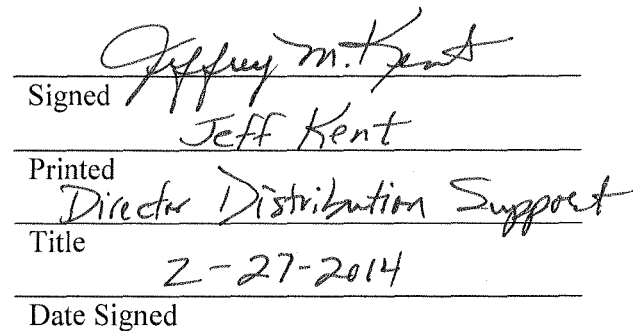 Jeffrey M. Kent
Signed
Jeff Kent
Printed
Director Distribution Support
Title
2-27-2014
Date Signed